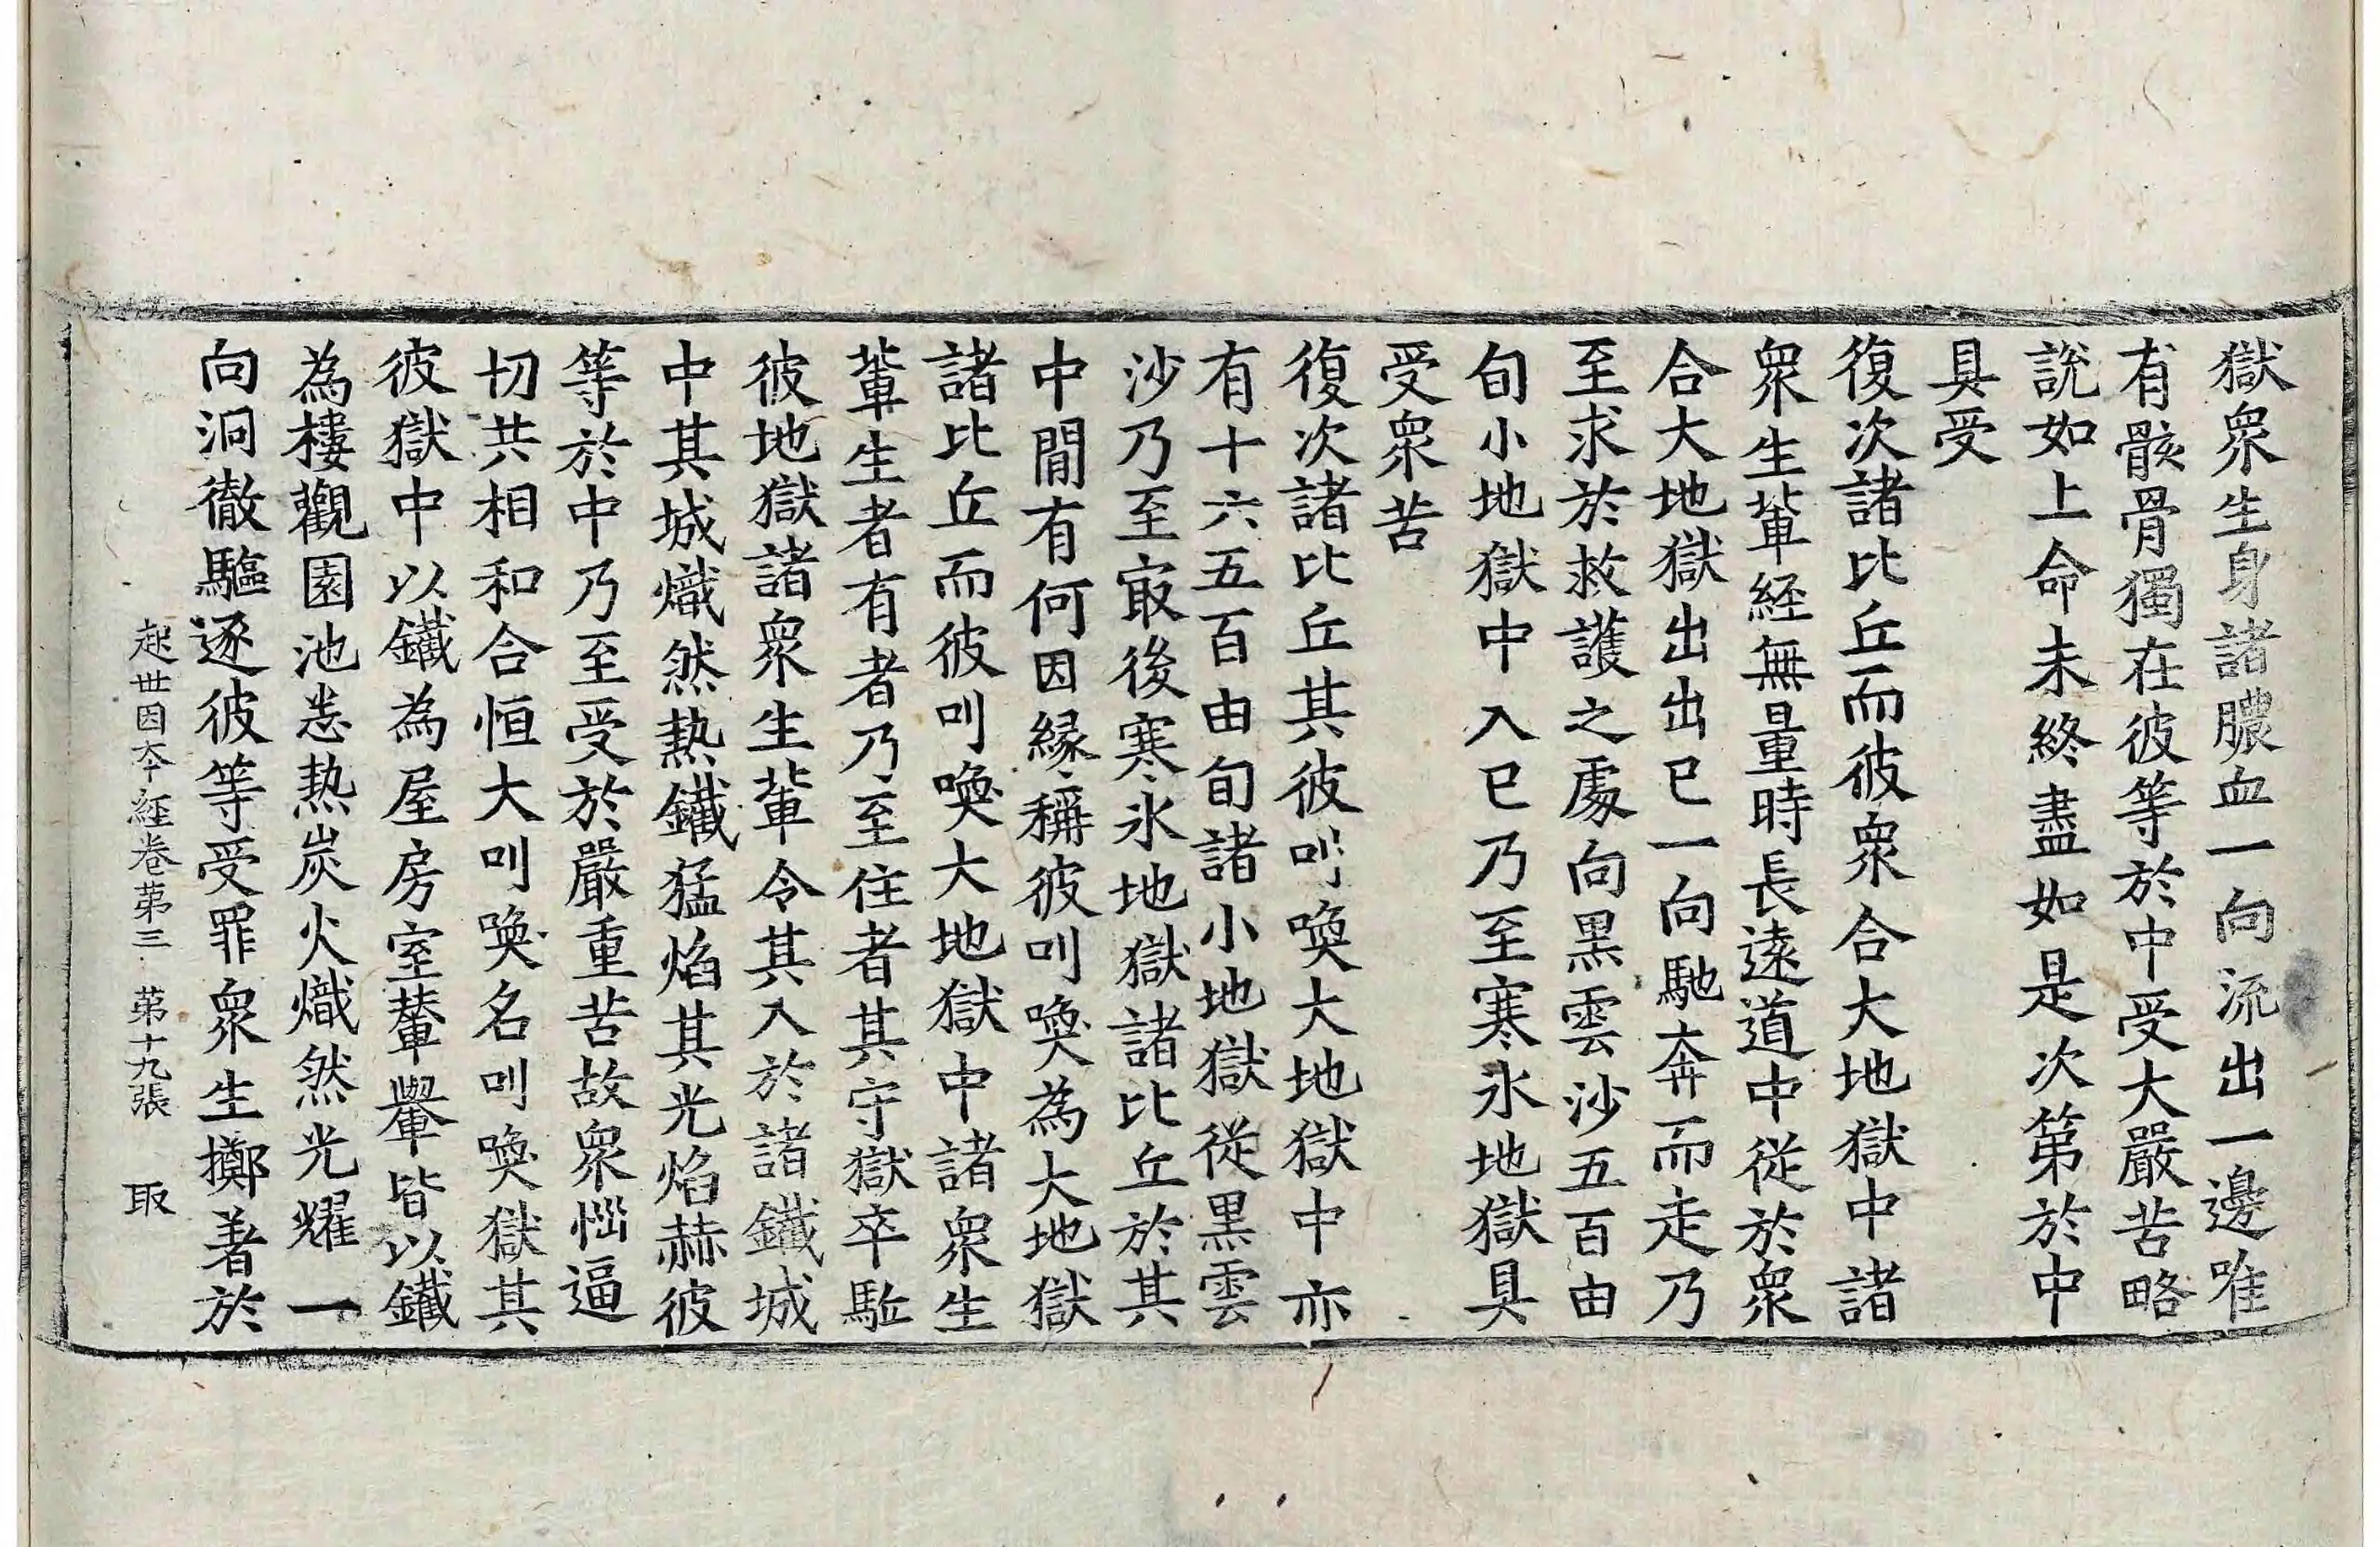 獄衆生身諸膿血一向流出一邊唯
有骸骨獨在彼等於中受大嚴苦略
說如上命未終盡如是次第於中
具受
復次諸比丘而彼衆合大地獄中諸
衆生軰經無量時長遠道中從於衆
合大地獄出出已一向馳奔而走乃
至求於救護之處向黒雲沙五百由
旬小地獄中入已乃至寒氷地獄具
受衆苦
復次諸比丘其彼叫喚大地獄中亦
有十六五百由旬諸小地獄從黒雲
沙乃至冣後寒氷地獄諸比丘於其
中間有何因縁稱彼叫喚為大地獄
諸比丘而彼叫喚大地獄中諸衆生
軰生者有者乃至住者其守獄卒駈
彼地獄諸衆生軰令其入於諸鐵城
中其城熾然熱鐵猛焰其光焰赫彼
等於中乃至受於嚴重苦故衆惱逼
切共相和合恒大叫喚名叫喚獄其
彼獄中以鐵為屋房室輦轝皆以鐵
為樓觀園池悉熱炭火熾然光耀一
向洞徹驅逐彼等受罪衆生擲着於
起世因夲經卷第三 第十九張 取